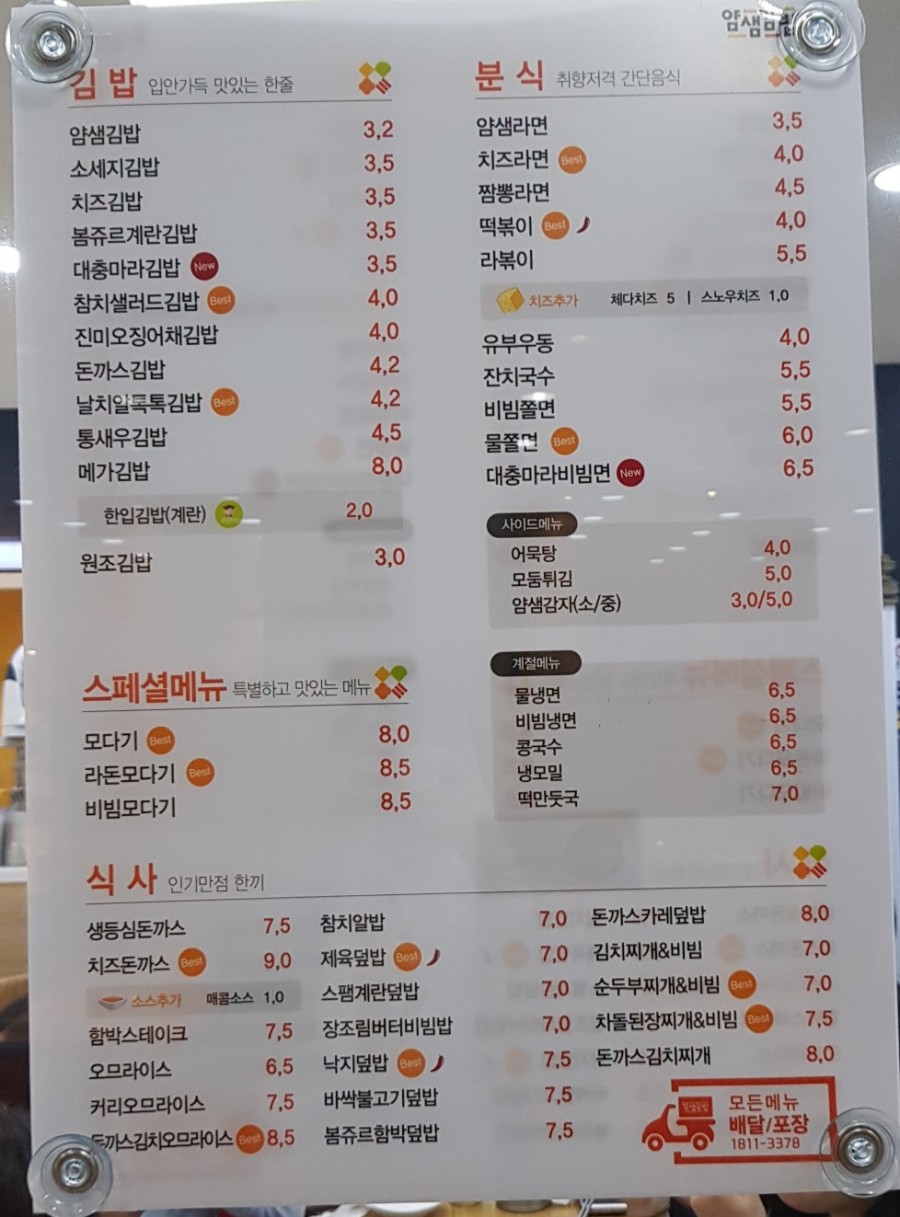 얌샘김밥
김밥 입안가득 맛있는 한줄
얌샘김밥 3,2
소세지김밥 3,5
치즈김밥 3,5
봄쥬르계란김밥 3,5
대충마라김밥 New 3,5
참치샐러드김밥 Best 4,0
진미오징어채김밥 4,0
돈까스김밥 4,2
날치알톡톡김밥 Best 4,2
통새우김밥 4,5
메가김밥 8,0
한입김밥(계란) 2,0
원조김밥 3,0
스페셜메뉴 특별하고 맛있는 메뉴
모다기 Best 8,0
라돈모다기 Best 8,5
비빔모다기 8,5
분식 취향저격 간단음식
얌샘라면 3,5
치즈라면 Best 4,0
짬뽕라면 4,5
떡볶이 Best 4,0
라볶이 5,5
치즈추가 체다치즈 5 | 스노우치즈 1,0
유부우동 4,0
잔치국수 5,5
비빔쫄면 5,5
물쫄면 Best 6,0
대충마라비빔면 New 6,5
사이드메뉴
어묵탕 4,0
모둠튀김 5,0
얌샘감자(소/중) 3,0/5,0
계절메뉴
물냉면 6,5
비빔냉면 6,5
콩국수 6,5
냉모밀 6,5
떡만둣국 7,0
식사 인기만점 한끼
생등심돈까스 7,5
치즈돈까스 Best 9,0
소스추가 매콤소스 1,0
함박스테이크 7,5
오므라이스 6,5
커리오므라이스 7,5
돈까스김치오므라이스 Best 8,5
참치알밥 7,0
제육덮밥 Best 7,0
스팸계란덮밥 7,0
장조림버터비빔밥 7,0
낙지덮밥 Best 7,5
바싹불고기덮밥 7,5
봄쥬르함박덮밥 7,5
돈까스카레덮밥 8,0
김치찌개&비빔 7,0
순두부찌개&비빔 Best 7,0
차돌된장찌개&비빔 Best 7,5
돈까스김치찌개 8,0
얌샘김밥
모든메뉴
배달/포장
1811-3378